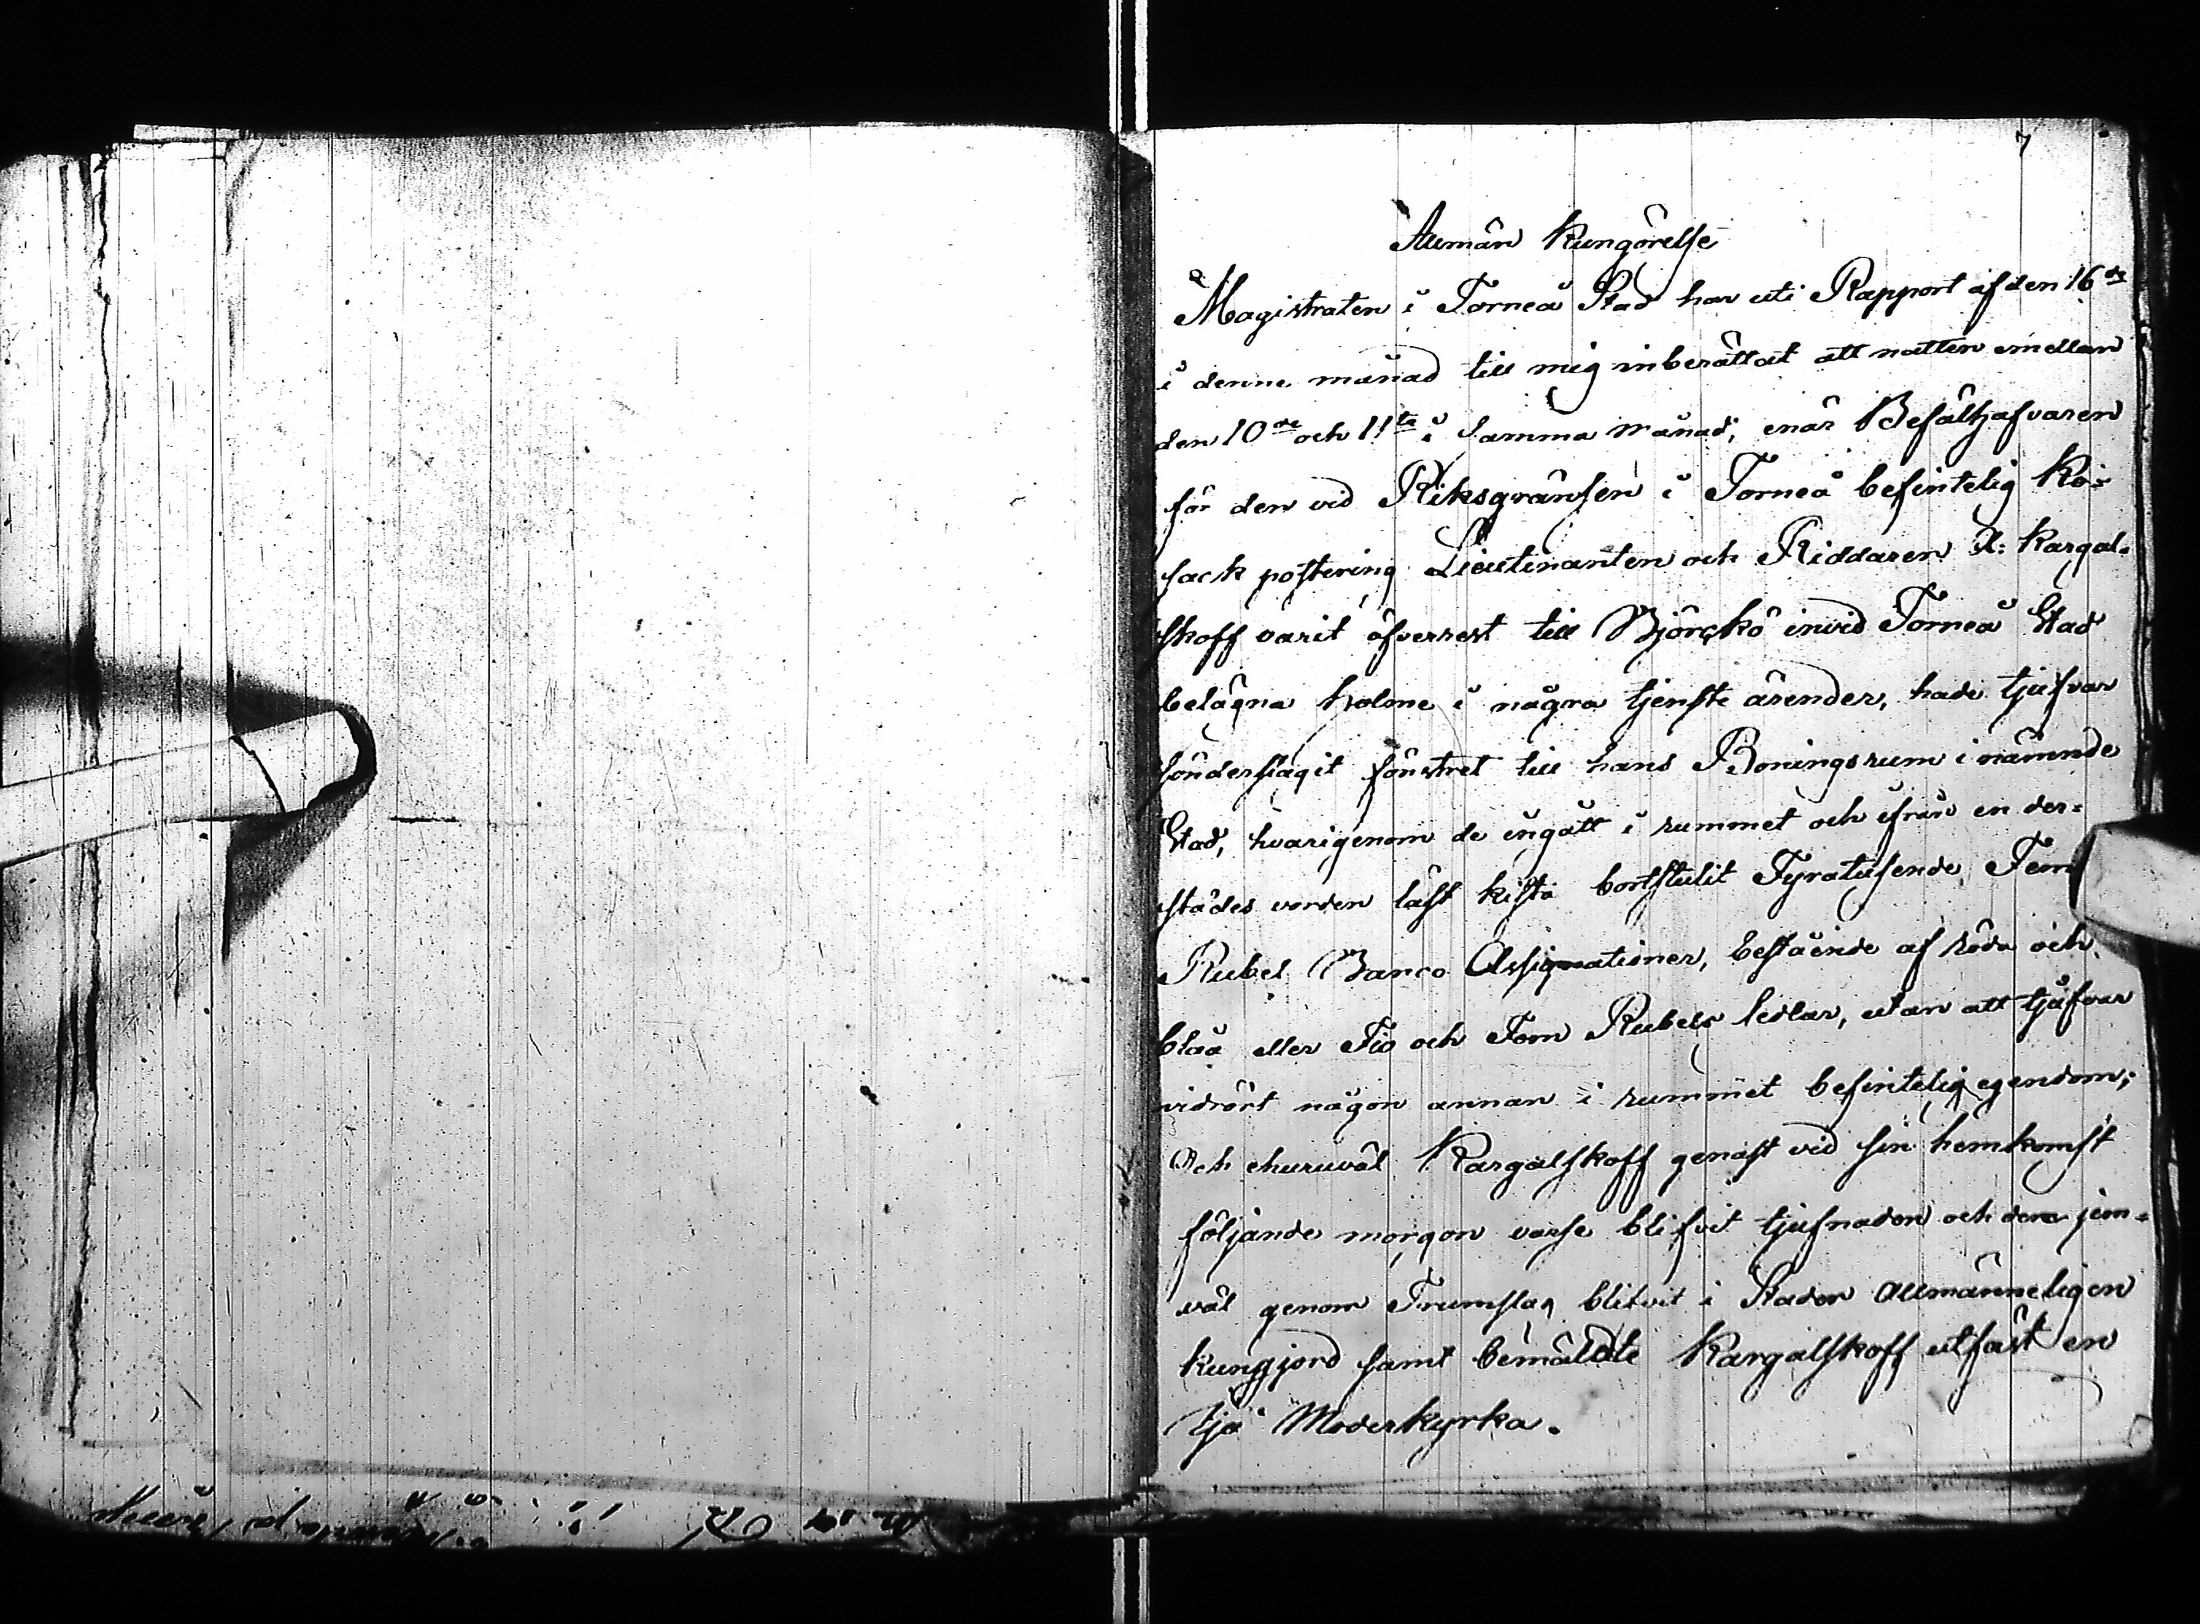 7
Allmän Kungörelse
Magistraten i Torneå Stad har uti Rapport af den 16de
i denne månad till mig inberättat att natten emellan
den 10de och 11te i samma månad, enär Befälhafvaren
för den vid Riksgränsen i Torneå befintelig Ko-
sack postering Lieutinanten och Riddaren A: Kargal-
skoff varit öfverrest till Björckö invid Torneå Stad
belägna holme i några tjenste ärender, hade tjufvar
sönderslagit fönstret till hans Boningsrum i nämnde
Stad, hvarigenom de ingått i rummet och ifrån en der=
städes vorden låst kista bortstulit Fyratusende Fem
Rubel Banco Assignationer, bestående af röda och
blåa eller Tio och Fem Rubels sedlar, utan att tjufvar
vidrört någon annan i rummet befintelig egendom;
Och ehuruväl Kargalskoff genast vid sin hemkomst
följande morgon varse blifvit tjufnaden och den jem=
väl genom Trumslag blifvit i Staden allmänneligen
kungjord samt bemäldte Kargalskoff utfäst en
tjo Moderkyrka.